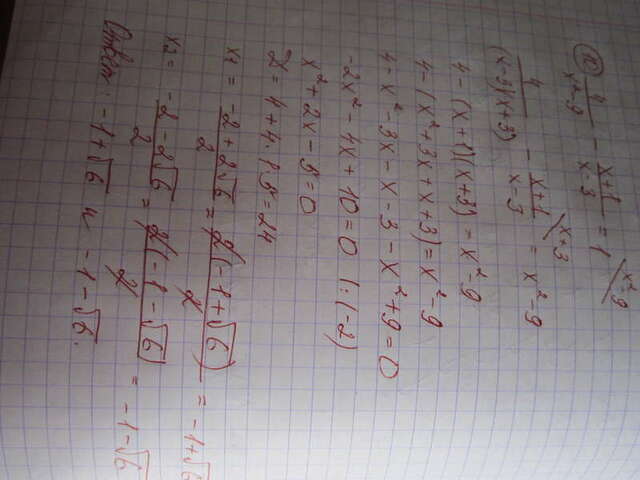 10) 4/(x²-9) - (x+1)/(x-3) = 1 /x²-9
4/((x-3)(x+3)) - (x+1)/(x-3) /x+3 = x²-9
4-(x+1)(x+3) = x²-9
4-(x²+3x+x+3) = x²-9
4-x²-3x-x-3-x²+9=0
-2x²-4x+10=0 |:(-2)
x²+2x-5=0
D=4+4·1·5=24
x₁ = (-2+2√6)/2 = 2(-1+√6)/2 = -1+√6
x₂ = (-2-2√6)/2 = 2(-1-√6)/2 = -1-√6
Ответ: -1+√6 и -1-√6.